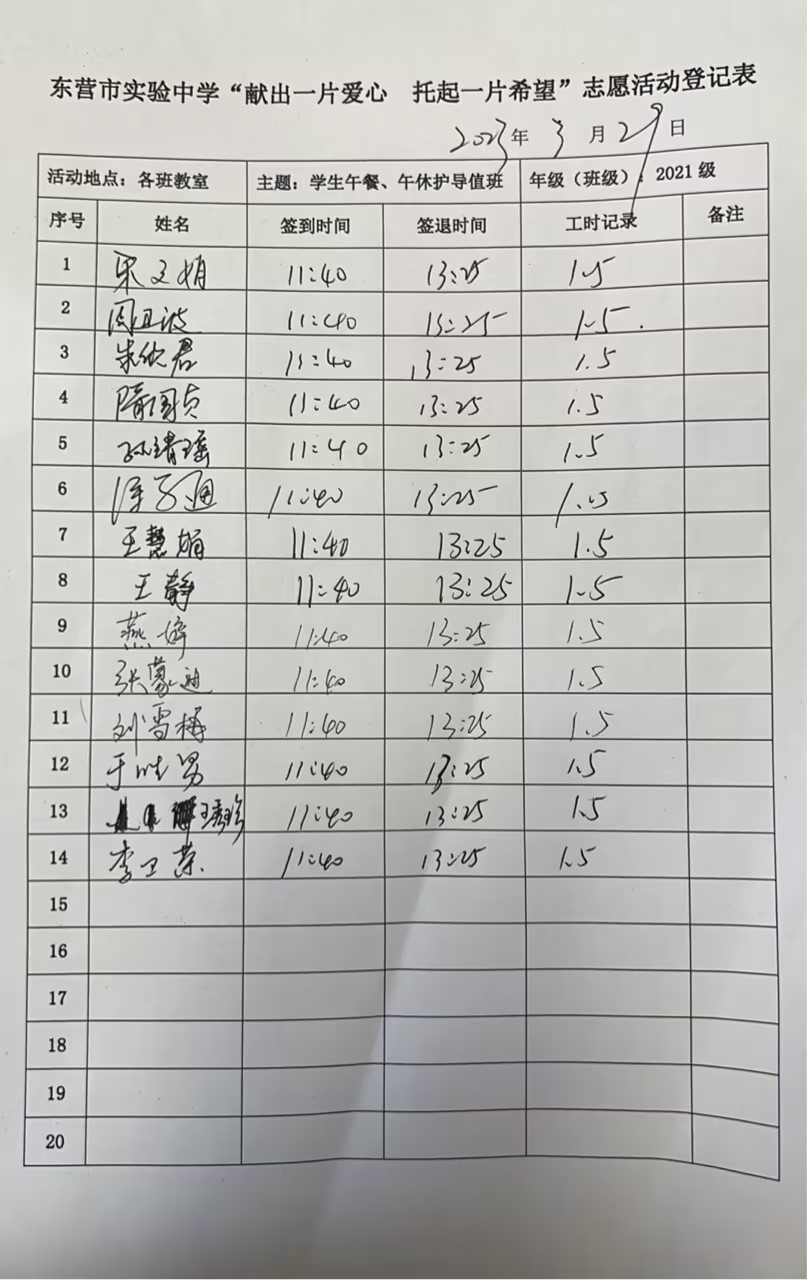 东营市实验中学“献出一片爱心 托起一片希望”志愿活动登记表
2023年 3月 29日
活动地点：各班教室 主题：学生午餐、午休护导值班 年级（班级）：2021 级
序号 姓名 签到时间 签退时间 工时记录 备注
1 宋文娟 11:40 13:25 1.5
2 11:40 13:25 1.5.
3 朱欣君 11:40 13:25 1.5
4 隋国贞 11:40 13:25 1.5
5 孙靖瑶 11:40 13:25 1.5
6 11:40 13:25 1.5
7 王慧娟 11:40 13:25 1.5
8 王静 11:40 13:25 1.5
9 燕婷 11:40 13:25 1.5
10 张蒙迪 11:40 13:25 1.5
11 刘雪梅 11:40 13:25 1.5
12 11:40 13:25 1.5
13 王秀珍 11:40 13:25 1.5
14 李卫荣 11:40 13:25 1.5
15
16
17
18
19
20